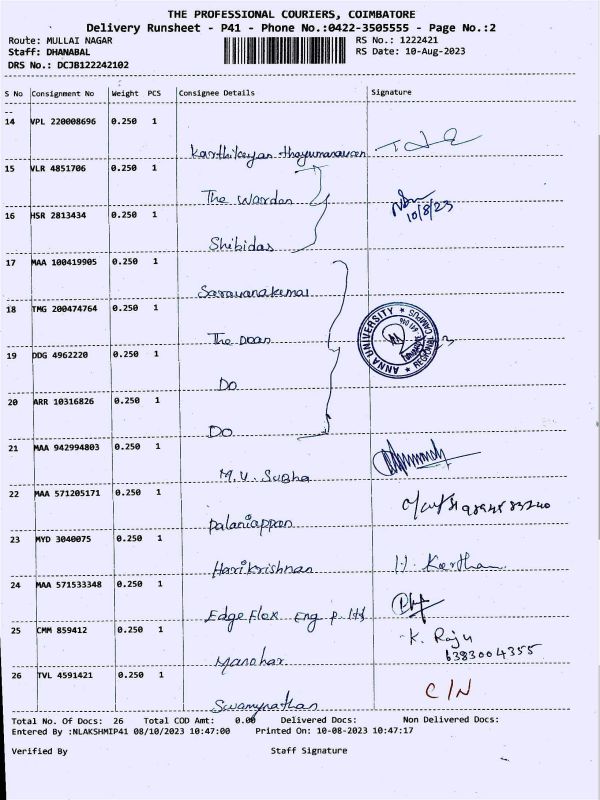 THE PROFESSIONAL COURIERS, COIMBATORE
Delivery Runsheet - P41 - Phone No.:0422-3505555 - Page No.:2
Route: MULLAI NAGAR RS No.: 1222421
Staff: DHANABAL RS Date: 10-Aug-2023
DRS No.: DCJB122242102
S No Consignment No Weight PCS Consignee Details Signature
14 VPL 220008696 0.250 1
Karthikeyan thayumanavan
15 VLR 4851706 0.250 1
The Warden
10/8/23
16 HSR 2813434 0.250 1
Shibidas
17 MAA 100419905 0.250 1
Saravanakumar
18 TMG 200474764 0.250 1
The Dean
ANNA UNIVERSITY REGIONAL CAMPUS
19 DDG 4962220 0.250 1
Do
20 ARR 10316826 0.250 1
Do
21 MAA 942994803 0.250 1
M.V. Subha
22 MAA 571205171 0.250 1
Palaniappan
23 MYD 3040075 0.250 1
Harikrishnan
24 MAA 571533348 0.250 1
Edge Flex Eng P. Ltd
25 CMM 859412 0.250 1 K. Raju
6383004355
Manohar
26 TVL 4591421 0.250 1 C/N
Swamynathan
Total No. Of Docs: 26 Total COD Amt: 0.00 Delivered Docs: Non Delivered Docs:
Entered By :NLAKSHMIP41 08/10/2023 10:47:00 Printed On: 10-08-2023 10:47:17
Verified By Staff Signature